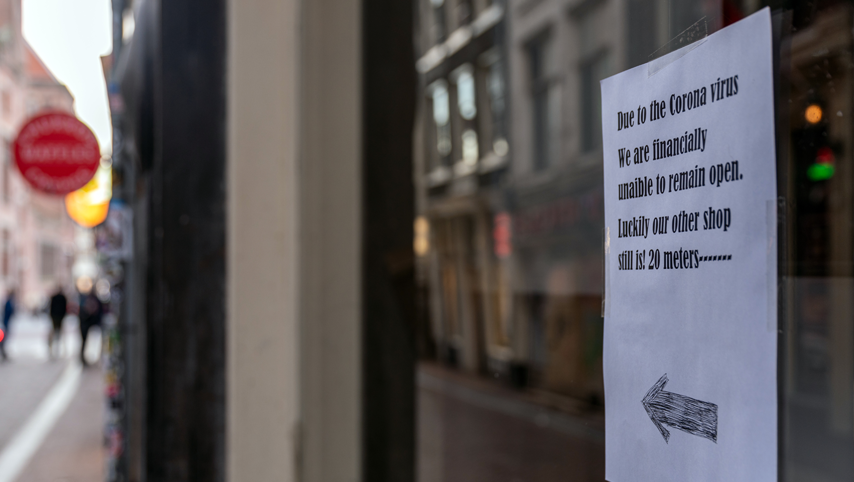 Due to the Corona virus
We are financially
unaible to remain open.
Luckily our other shop
still is! 20 meters-------